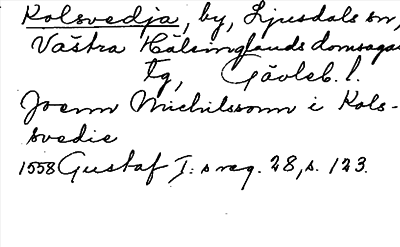 Kolsvedja, by, Ljusdals sn,
Västra Hälsinglands domsagas
tg, Gävleb. l.
Joenn Michilssonn i Kols-
svedie
1558 Gustaf I: s reg. 28, s. 123.